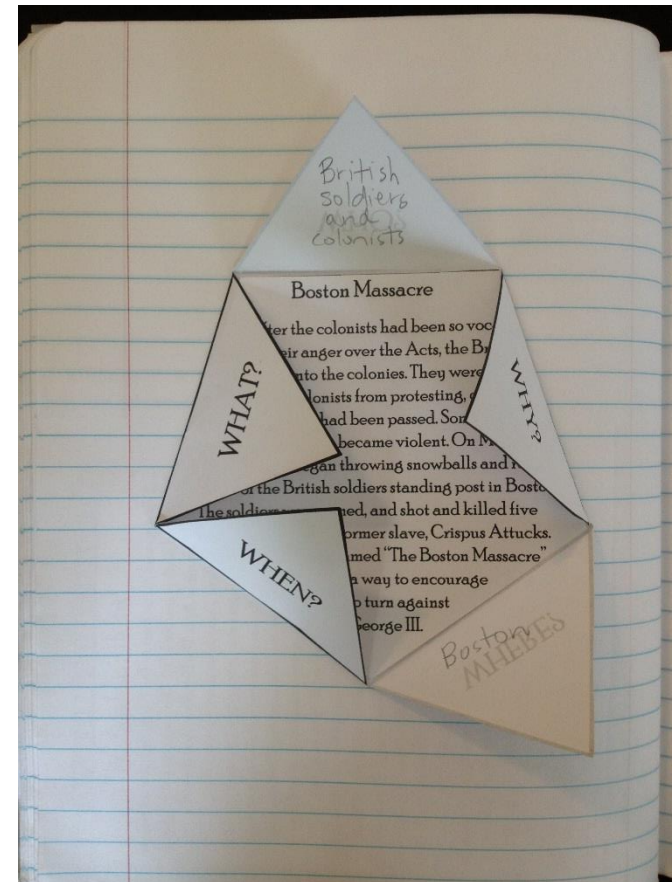 British
soldiers
and
colonists
Boston Massacre
ter the colonists had been so voc
eir anger over the Acts, the Br
nto the colonies. They were
lonists from protesting,
had been passed. Som
became violent. On M
gan throwing snowballs and
of the British soldiers standing post in Bosto
The soldiers ned, and shot and killed five
ormer slave, Crispus Attucks.
med "The Boston Massacre"
a way to encourage
o turn against
George III.
WHAT?
WHY?
WHEN?
Boston
WHERE?